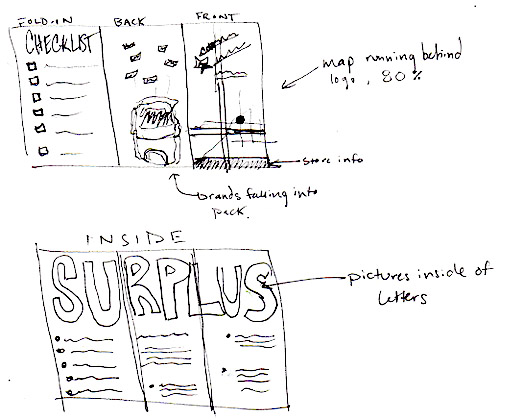 FOLD-IN
BACK
FRONT
CHECKLIST
map running behind
logo, 80%
store info
brands falling into
pack.
INSIDE
SURPLUS
pictures inside of
letters